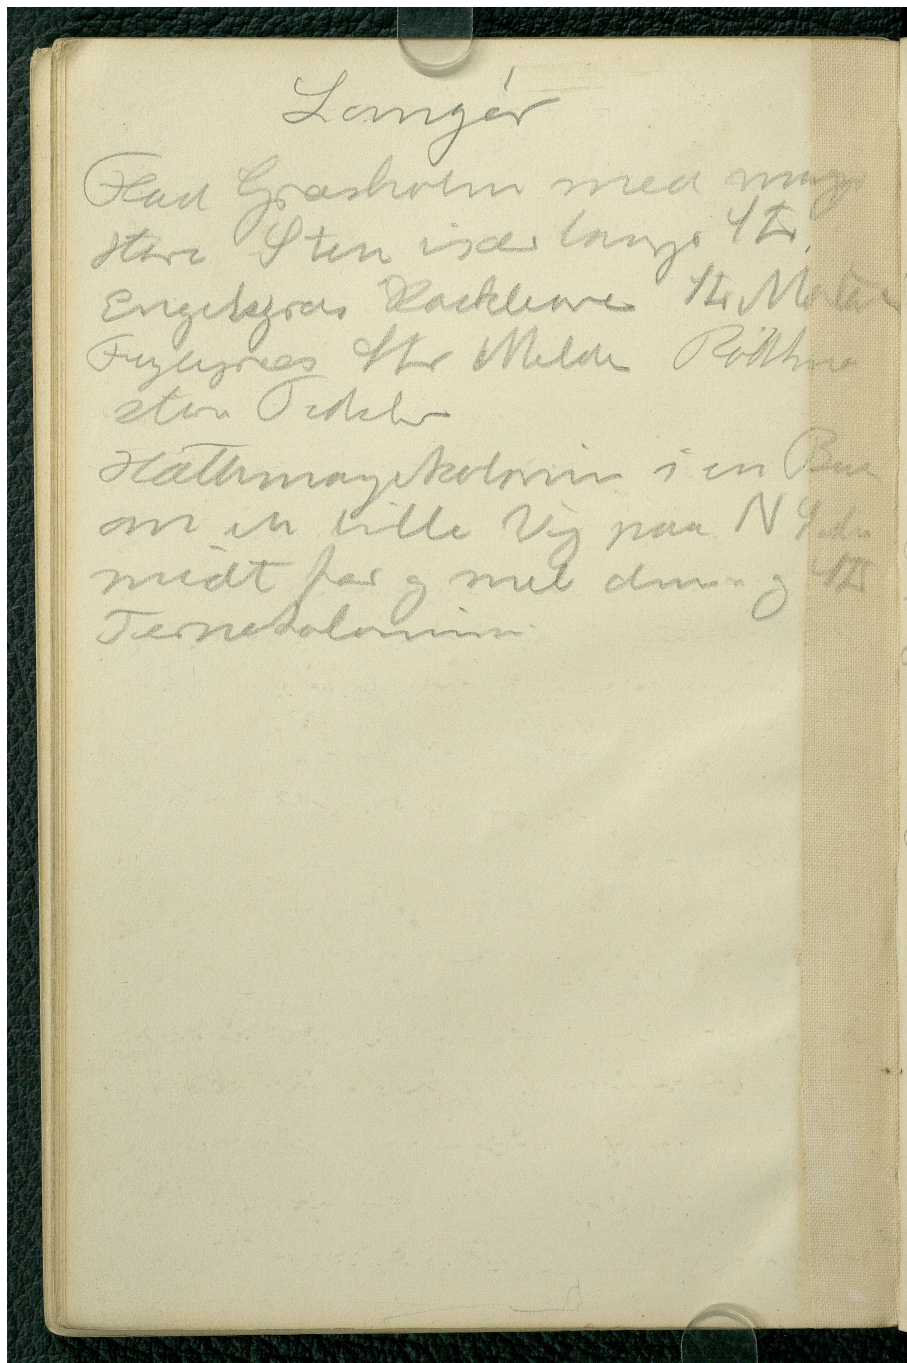 Langör
Flad Græsholm med mange
store Sten især langs Str.
Engelsgræs Kockleare Str. Melde
Fuglegræs Str Melde
store Tidsler
Hættemaagekolonien i en Bue
om en lille Vig paa N Siden
midt for og mel dem og Str
Ternekolonien